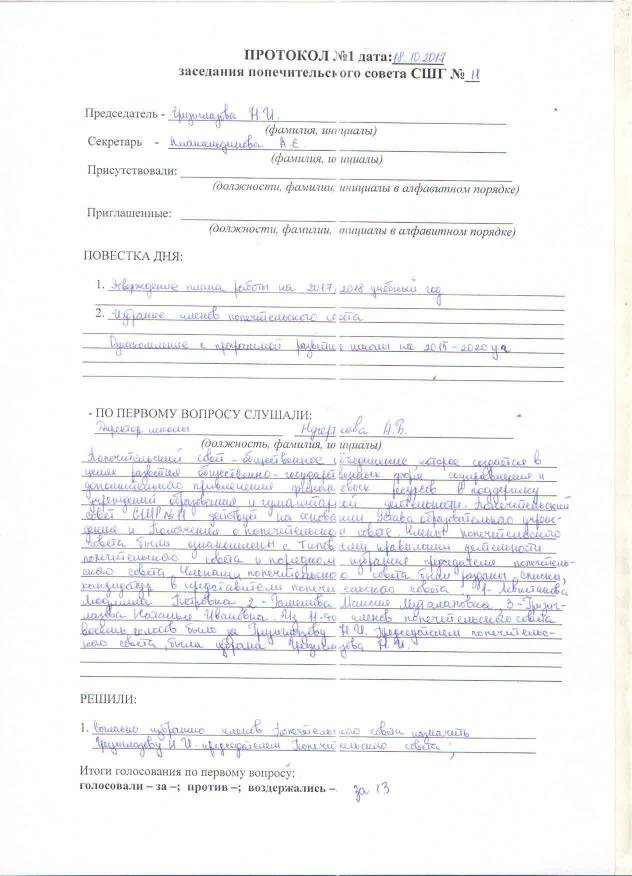 ПРОТОКОЛ №1 дата: 18.10.2017
заседания попечительского совета СШГ № 11
Председатель - Н.И.
(фамилия, инициалы)
Секретарь - А.Е
(фамилия, инициалы)
Присутствовали:
(должности, фамилии, инициалы в алфавитном порядке)
Приглашенные:
(должности, фамилии, инициалы в алфавитном порядке)
ПОВЕСТКА ДНЯ:
1. Утверждение плана работы на 2017, 2018 учебный год
2. Избрание членов попечительского совета
Ознакомление с программой развития школы на 2015 - 2020 уч
- ПО ПЕРВОМУ ВОПРОСУ СЛУШАЛИ:
Директор школы А.Б.
(должность, фамилия, инициалы)
Попечительский совет - общественное объединение которое создается в
целях развития общественно-государственных форм соуправления и
дополнительного привлечения финансовых ресурсов в поддержку
учреждений образования и гуманитарной деятельности. Попечительский
совет действует на основании Устава образовательного учреж-
дения и Положения о попечительском совете. Члены попечительского
совета были ознакомлены с типовыми правилами деятельности
попечительского совета и порядком избрания председателя попечитель-
ского совета. Членам попечительского совета были розданы списки,
кандидатур в представители попечительского совета 1-
Людмила Петровна 2- 3-
Наталья Ивановна. Из 11-ю членов попечительского совета
восемь голосов было за Н.И. Председателем попечительс-
кого совета была избрана Н.И.
РЕШИЛИ:
1. Согласно избранию членов Попечительского совета назначить
Н.И. председателем Попечительского совета;
Итоги голосования по первому вопросу:
голосовали – за –; против –; воздержались – за 13